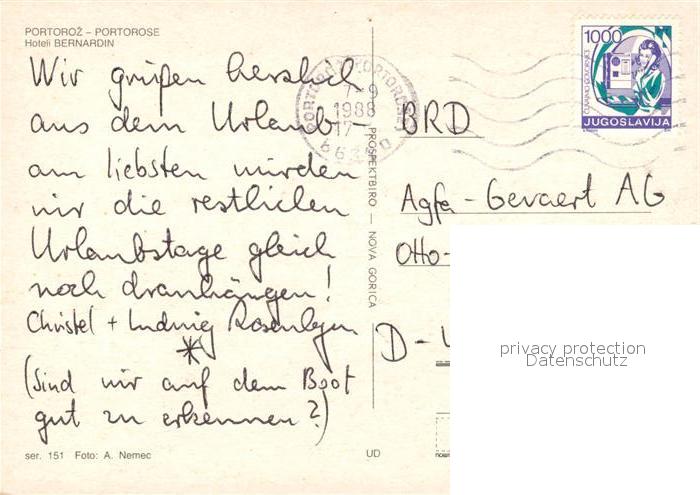 PORTOROŽ – PORTOROSE
Hoteli BERNARDIN
Wir grüßen herzlich
aus dem Urlaub –
am liebsten würden
wir die restlichen
Urlaubstage gleich
noch dranhängen!
Christel + Ludwig
*
(Sind wir auf dem Boot
gut zu erkennen?)
ser. 151 Foto: A. Nemec
PROSPEKTBIRO — NOVA GORICA
UD
7-9
1988
17
1000
JUGOSLAVIJA
BRD
Agfa-Gevaert AG
Otto-
D-
privacy protection
Datenschutz